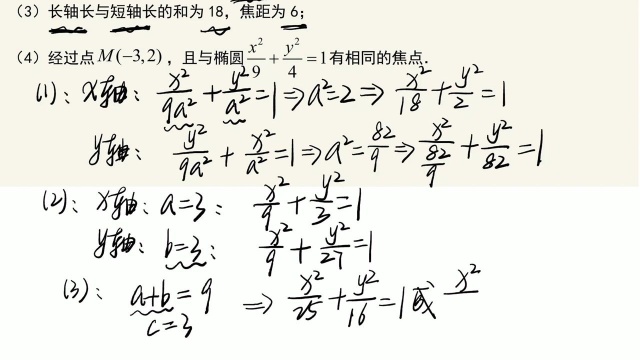 (3) 长轴长与短轴长的和为 18，焦距为 6；
(4) 经过点 M(−3,2)，且与椭圆 x²/9 + y²/4 = 1 有相同的焦点.
(1)：x轴：x²/9a² + y²/a² = 1 ⇒ a²=2 ⇒ x²/18 + y²/2 = 1
y轴：y²/9a² + x²/a² = 1 ⇒ a² = 82/9 ⇒ x²/(82/9) + y²/82 = 1
(2)：x轴：a=3：x²/9 + y²/3 = 1
y轴：b=3：x²/9 + y²/27 = 1
(3)：a+b=9 ⇒ x²/25 + y²/16 = 1 或 x²/
c=3